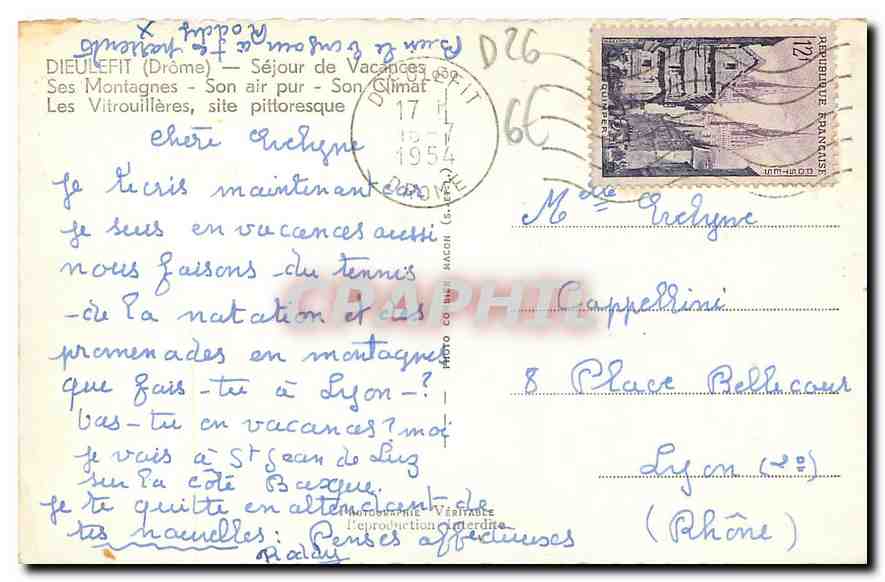 Bien le bonjour à tes parents
Roddy
X
DIEULEFIT (Drôme) — Séjour de Vacances
Ses Montagnes - Son air pur - Son Climat
Les Vitrouillères, site pittoresque
Chère Evelyne
Je t'écris maintenant car
Je suis en vacances aussi
nous faisons du tennis
de la natation et des
promenades en montagnes
que fais-tu à Lyon-?
Vas-tu en vacances? moi
je vais à St Jean de Luz
sur la côte Basque.
Je te quitte en attendant de
tes nouvelles: Pensées affectueuses
Roddy
D26
6E
DIEULEFIT
17 H
16-7
1954
DROME
REPUBLIQUE FRANÇAISE
12F
POSTES
QUIMPER
PHOTO COMBIER MACON (S.-et-L.)
PHOTOGRAPHIE VÉRITABLE
Reproduction Interdite
CPAPHIL
Melle Evelyne
Cappellini
8 Place Bellecour
Lyon (2e)
(Rhône)